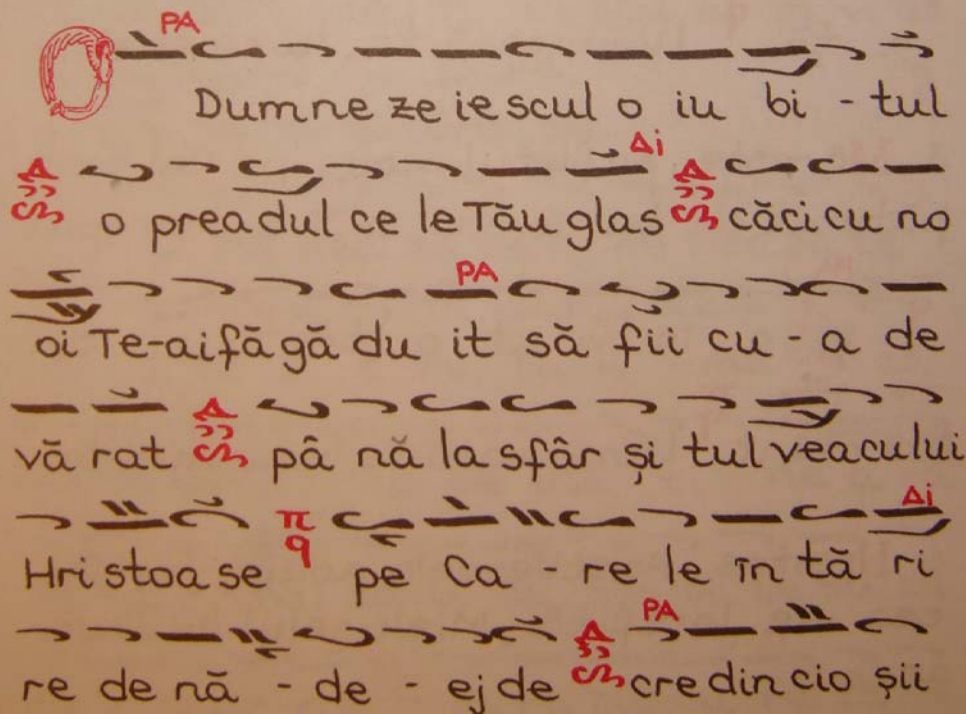 PA
O Dumne ze ie scul o iu bi - tul
Δi
o prea dul ce le Tău glas căci cu no
PA
oi Te-ai fă gă du it să fii cu - a de
vă rat pâ nă la sfâr și tul veacului
Δi
Hri stoa se π q pe Ca - re le în tă ri
PA
re de nă - de - ej de cre din cio șii